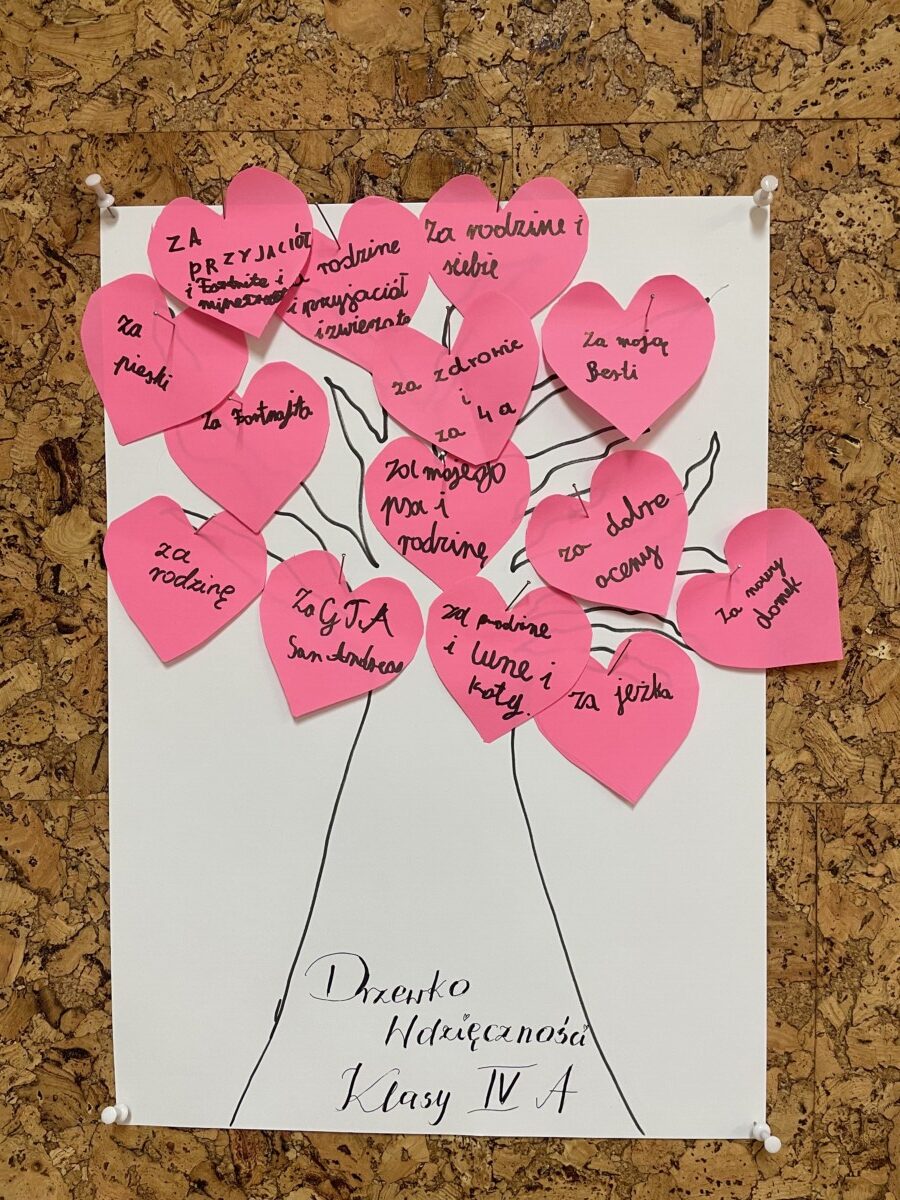 ZA
PRZYJACIÓŁ
i Fortnite i
rodzine
i przyjaciół
i zwierzęta
Za rodzine i
siebie
za
pieski
za zdrowie
i
za 4a
Za moją
Besti
Za Fortnajta
za mojego
psa i
rodzinę
za dobre
oceny
za
rodzinę
Za GTA
San Andreas
za rodzine
i Lune i
koty.
za nowy
domek
za jeżka
Drzewko
Wdzięczności
Klasy IV A